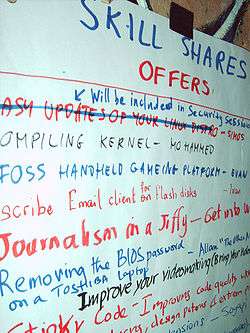 SKILL SHARES
OFFERS
↙ Will be included in Security SESS
ASY UPDATES OF YOUR LINUX DISTRO - SIMOS
OMPILING KERNEL - MOHAMMED
FOSS HANDHELD GAMEING PLATFORM - EVAN
scribe Email client for on Flash disks
Journalism in a Jiffy - Get into
Removing the BIOS password
on a Toshiba laptop - Allan "The
Improve your videomaking (Bring your
Stinky Code - Improving code quality